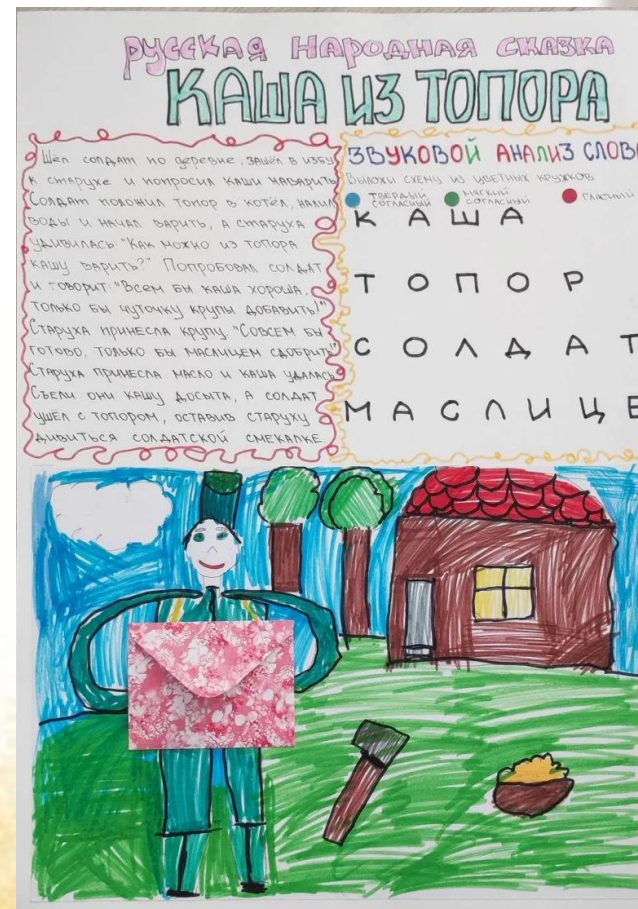 РУССКАЯ НАРОДНАЯ СКАЗКА
КАША ИЗ ТОПОРА
Шёл солдат по деревне, зашёл в избу
к старухе и попросил каши наварить
Солдат положил топор в котёл, налил
воды и начал варить, а старуха
удивилась "Как можно из топора
кашу варить?" Попробовал солдат
и говорит: "Всем бы каша хороша,
только бы чуточку крупы добавить!"
Старуха принесла крупу. "Совсем бы
готово, только бы маслицем сдобрить"
Старуха принесла масло и каша удалась
Съели они кашу досыта, а солдат
ушёл с топором, оставив старуху
дивиться солдатской смекалке.
ЗВУКОВОЙ АНАЛИЗ СЛОВ
Выложи схему из цветных кружков
ТВЕРДЫЙ СОГЛАСНЫЙ МЯГКИЙ СОГЛАСНЫЙ ГЛАСНЫЙ
КАША
ТОПОР
СОЛДАТ
МАСЛИЦЕ